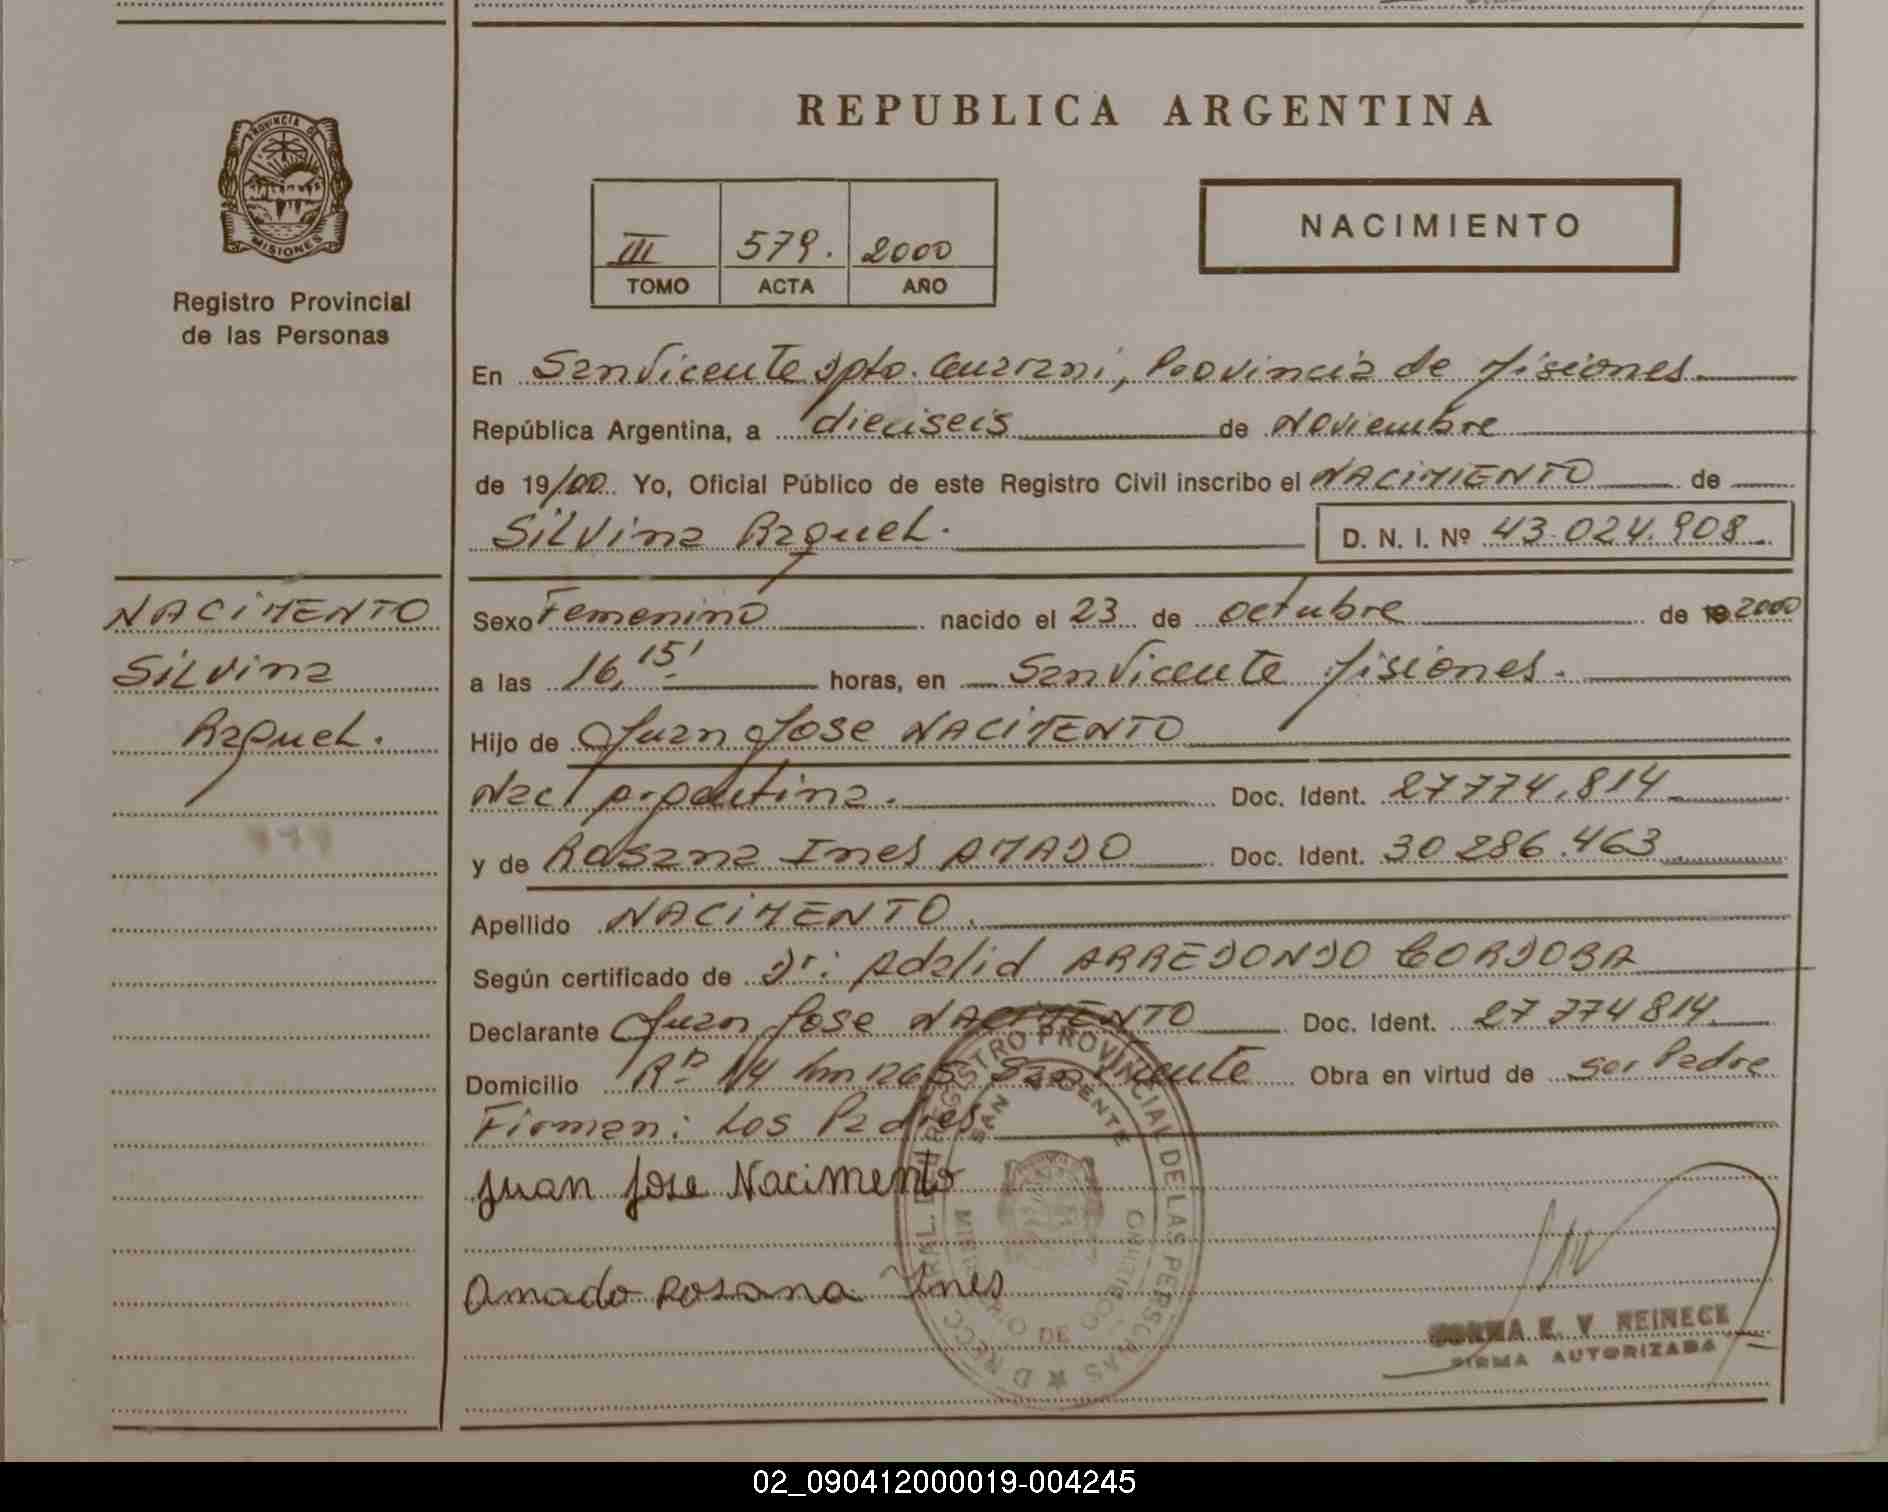 REPUBLICA ARGENTINA
PROVINCIA DE
MISIONES
Registro Provincial
de las Personas
III 579. 2000
TOMO ACTA AÑO
NACIMIENTO
En San Vicente Dpto. Guarani, Provincia de Misiones.
República Argentina, a dieciseis de Noviembre
de 19/00 Yo, Oficial Público de este Registro Civil inscribo el NACIMIENTO de
Silvina Raquel. D. N. I. Nº 43.024.908
NACIMENTO
Silvina
Raquel.
Sexo Femenino nacido el 23 de octubre de 2000
a las 16,15' horas, en San Vicente Misiones.
Hijo de Juan Jose NACIMENTO
Nac Argentina. Doc. Ident. 27774.814
y de Rosana Ines AMADO Doc. Ident. 30286.463
Apellido NACIMENTO.
Según certificado de Dr: Adalid ARREDONDO CORDOBA
Declarante Juan Jose NACIMENTO Doc. Ident. 27774814
Domicilio Rª 14 km 1265 San Vicente Obra en virtud de ser Padre
Firman: Los Padres
Juan Jose Nacimento
Amado Rosana Ines
REGISTRO PROVINCIAL DE LAS PERSONAS
SAN VICENTE
MINISTERIO DE GOBIERNO
NORMA E. V. REINECK
FIRMA AUTORIZADA
02_090412000019-004245